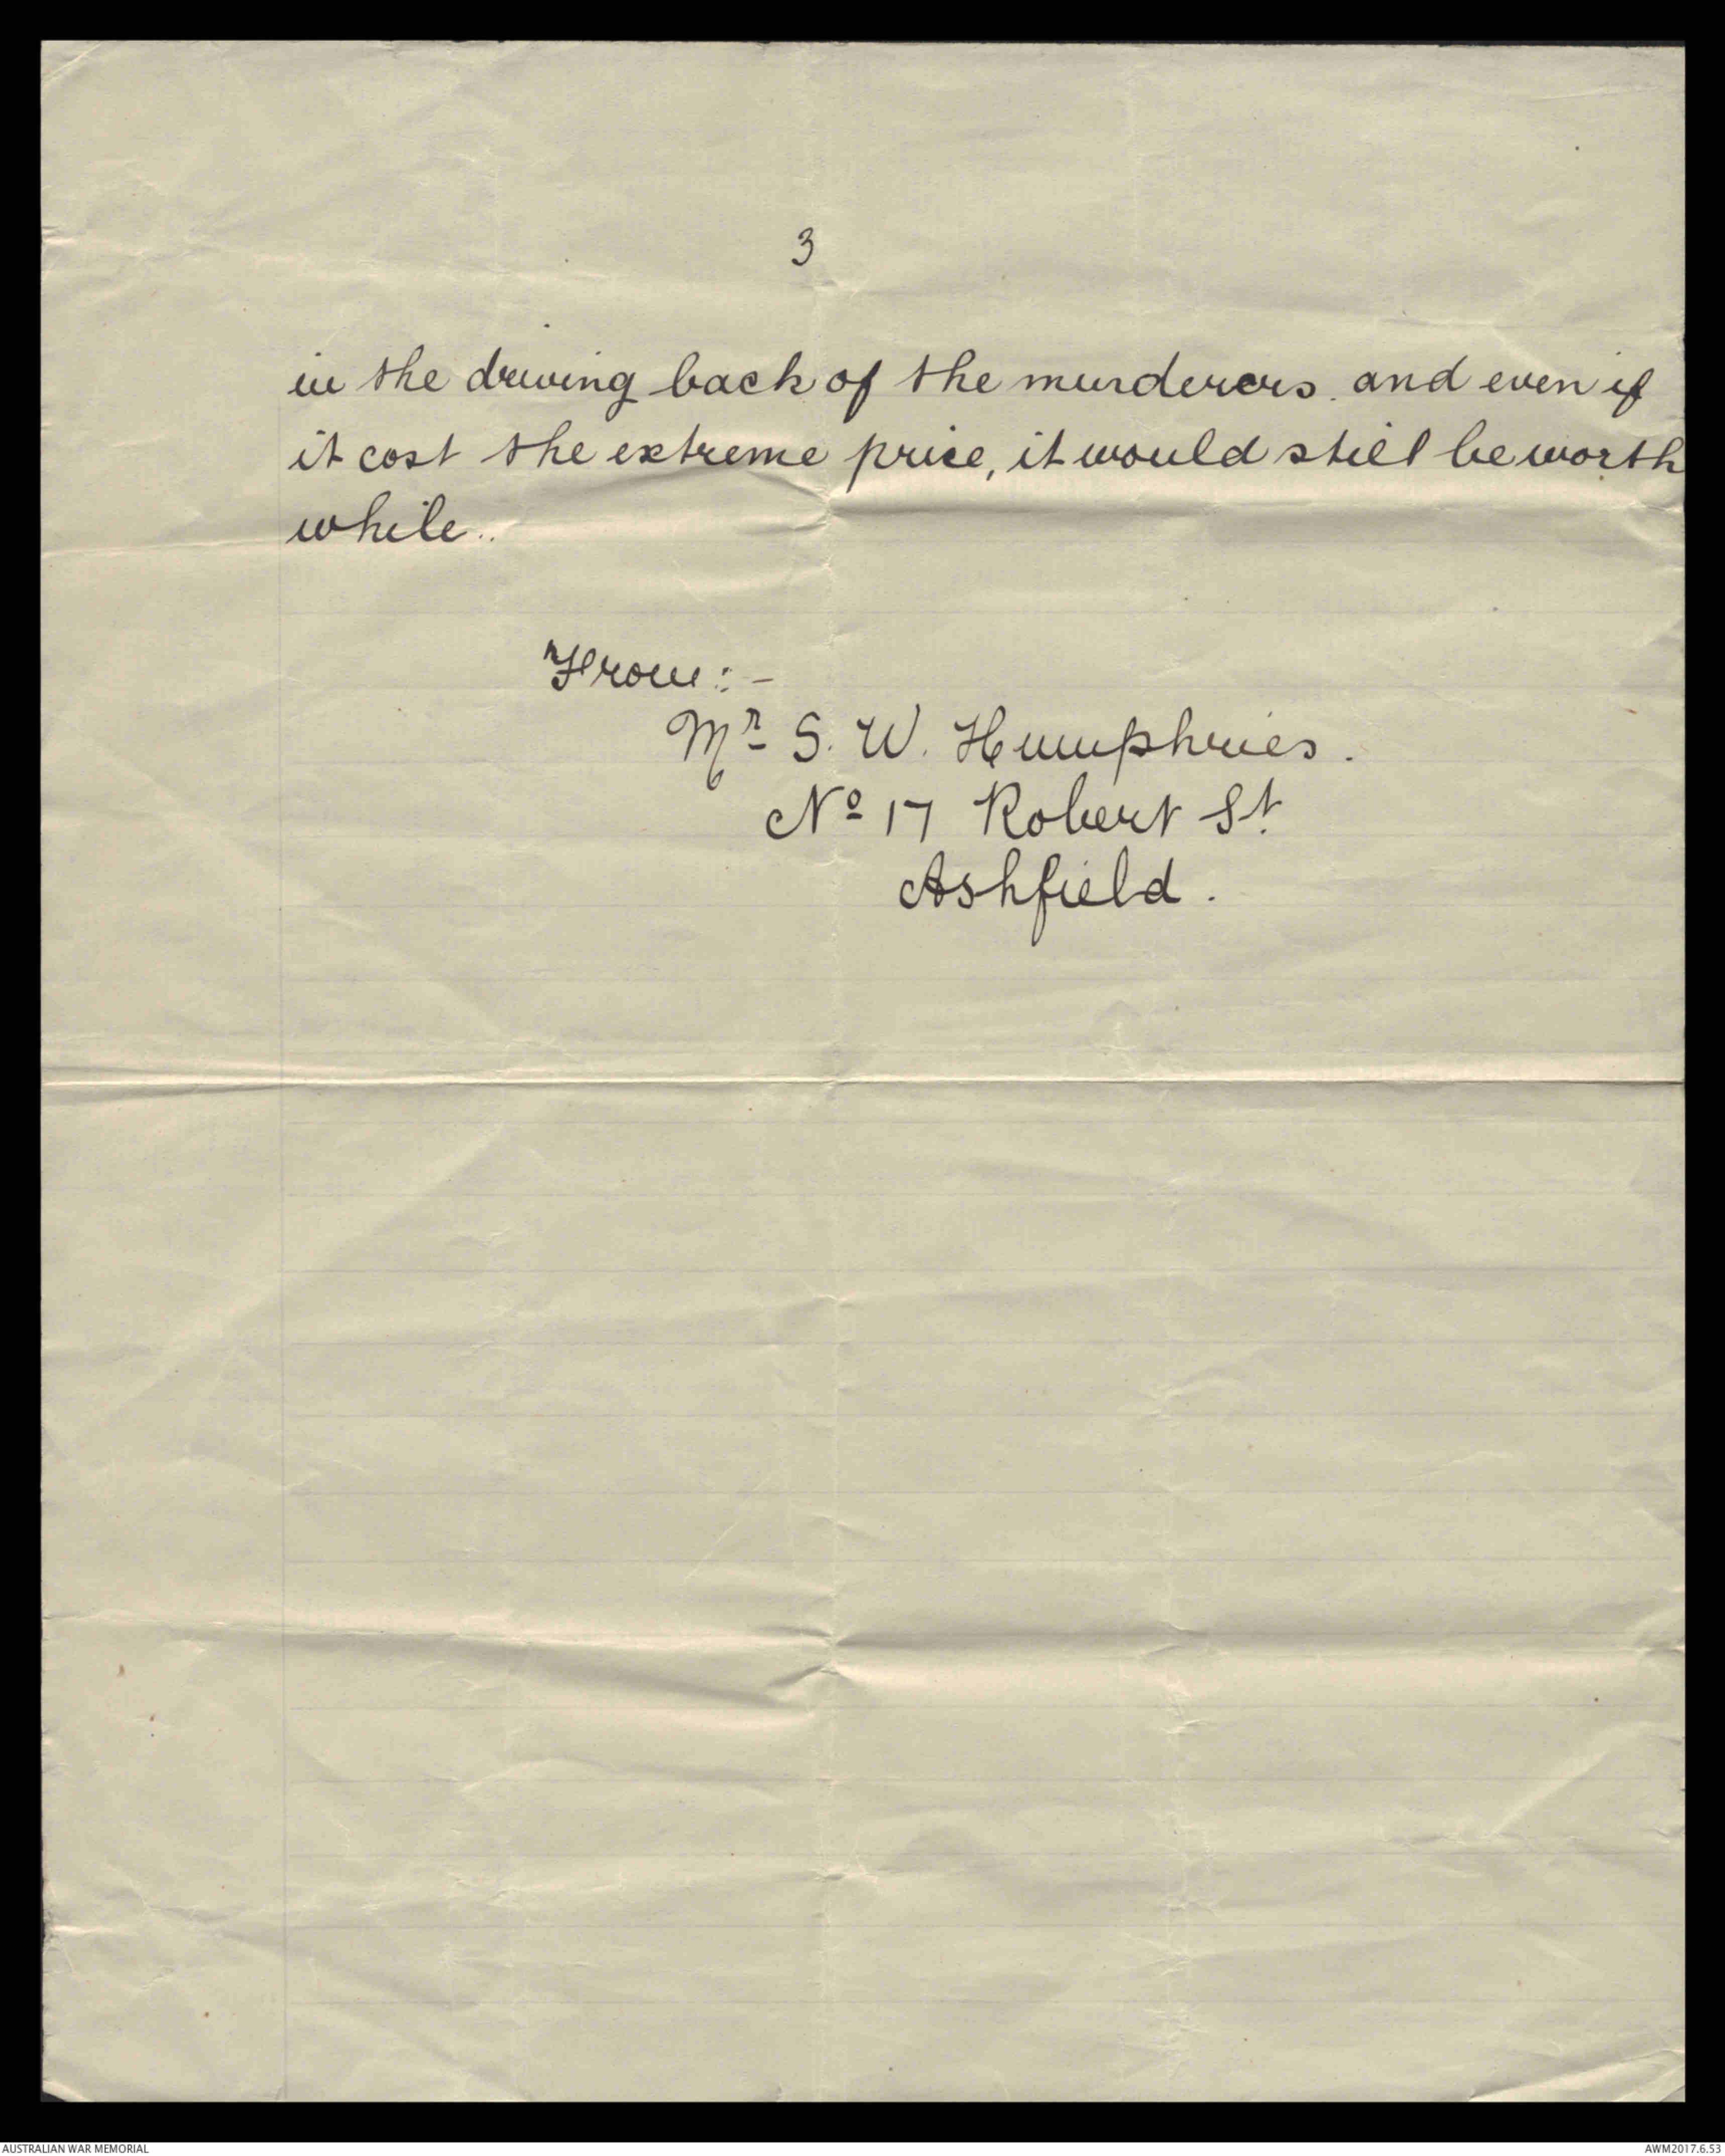 3
in the driving back of the murderers. and even if
it cost the extreme price, it would still be worth
while..
From:-
Mr S. W. Humphries.
No 17 Robert St.
Ashfield.
AUSTRALIAN WAR MEMORIAL
AWM2017.6.53